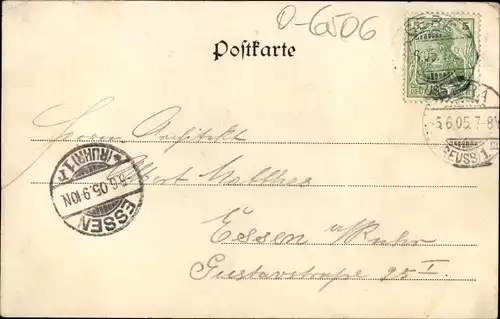 O-6506
Postkarte
5
5.6.05.7-8V
REUSS)1
Herrn Architekt
Albert
ESSEN
*(RUHR)1r
6.6.05.9-10N
Essen a/Ruhr
Gustavstraße 95 I.